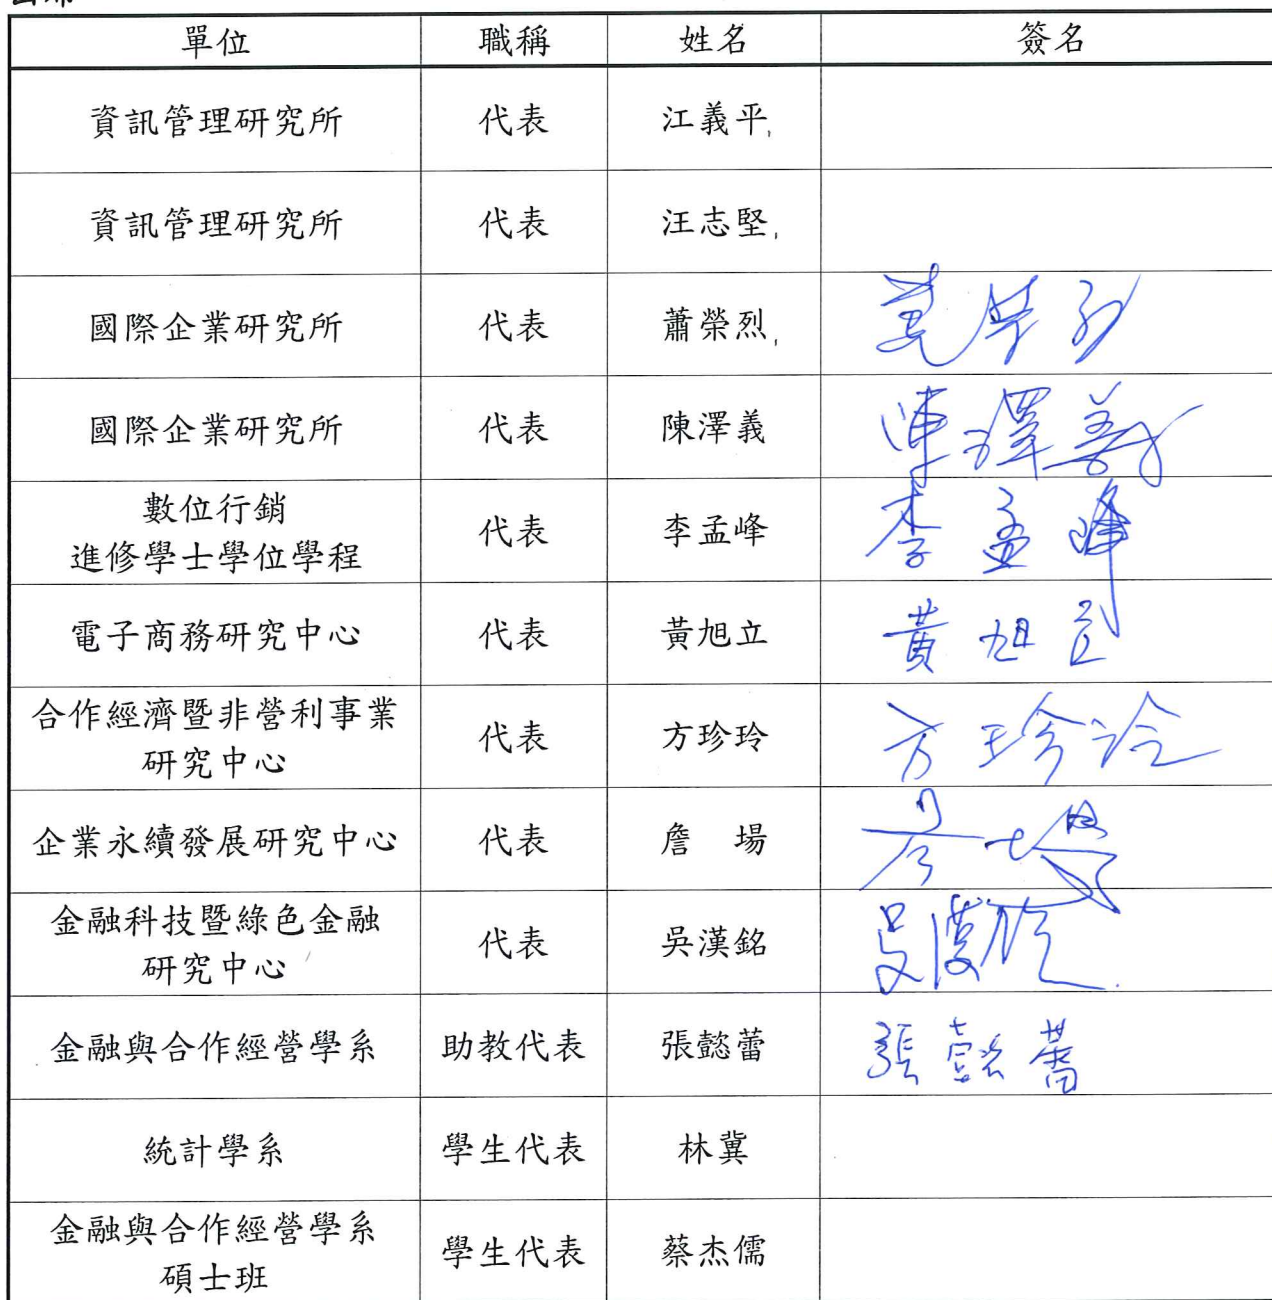 單位 職稱 姓名 簽名
資訊管理研究所 代表 江義平
資訊管理研究所 代表 汪志堅
國際企業研究所 代表 蕭榮烈 蕭榮烈
國際企業研究所 代表 陳澤義 陳澤義
數位行銷
進修學士學位學程 代表 李孟峰 李孟峰
電子商務研究中心 代表 黃旭立 黃旭立
合作經濟暨非營利事業
研究中心 代表 方珍玲 方珍玲
企業永續發展研究中心 代表 詹 場 詹場
金融科技暨綠色金融
研究中心 代表 吳漢銘 吳漢銘
金融與合作經營學系 助教代表 張懿蕾 張懿蕾
統計學系 學生代表 林冀
金融與合作經營學系
碩士班 學生代表 蔡杰儒